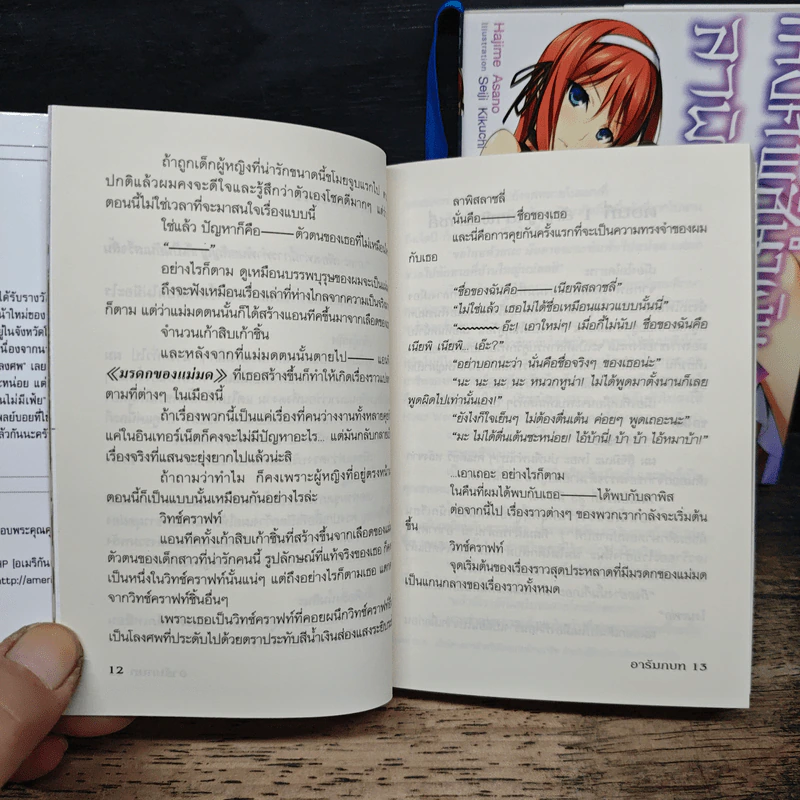 Hajime Asano
Illustration Seiji Kikuchi
ได้รับรางวั
น้าใหม่ของ
ถ้าถูกเด็กผู้หญิงที่น่ารักขนาดนี้ขโมยจูบแรกไป
ปกติแล้วผมคงจะดีใจและรู้สึกว่าตัวเองโชคดีมากๆ แต่
ตอนนี้ไม่ใช่เวลาที่จะมาสนใจเรื่องแบบนี้
ใช่แล้ว ปัญหาก็คือ——ตัวตนของเธอที่ไม่เหมือน
“———”
อย่างไรก็ตาม ดูเหมือนบรรพบุรุษของผมจะเป็นแม่
ถึงจะฟังเหมือนเรื่องเล่าที่ห่างไกลจากความเป็นจริง
ก็ตาม แต่ว่าแม่มดตนนั้นก็ได้สร้างแอนทีคขึ้นมาจากเลือดของ
จำนวนเก้าสิบเก้าชิ้น
และหลังจากที่แม่มดตนนั้นตายไป——
《มรดกของแม่มด》 ที่เธอสร้างขึ้นก็ทำให้เกิดเรื่องราว
ตามที่ต่างๆ ในเมืองนี้
ถ้าเรื่องพวกนี้เป็นแค่เรื่องที่คนว่างงานทั้งหลาย
แค่ในอินเทอร์เน็ตก็คงจะไม่มีปัญหาอะไร... แต่มันกลับกลาย
เรื่องจริงที่แสนจะยุ่งยากไปแล้วน่ะสิ
ถ้าถามว่าทำไม ก็คงเพราะผู้หญิงที่อยู่ตรงหน้า
ตอนนี้ก็เป็นแบบนั้นเหมือนกันอย่างไรล่ะ
วิทช์คราฟท์
แอนทีคทั้งเก้าสิบเก้าชิ้นที่สร้างขึ้นจากเลือดของแม่มด
ตัวตนของเด็กสาวที่น่ารักคนนี้ รูปลักษณ์ที่แท้จริงของเธอ
เป็นหนึ่งในวิทช์คราฟท์นั้นแน่ๆ แต่ถึงอย่างไรก็ตามเธอ
จากวิทช์คราฟท์ชิ้นอื่นๆ
เพราะเธอเป็นวิทช์คราฟท์ที่คอยผนึกวิทช์คราฟท์
เป็นโลงศพที่ประดับไปด้วยตราประทับสีน้ำเงินส่องแสงระยิบ
12
ลาพิสลาซลี่
นั่นคือ——ชื่อของเธอ
และนี่คือการคุยกันครั้งแรกที่จะเป็นความทรงจำของผม
กับเธอ
“ชื่อของฉันคือ——เนียพิสลาซลี่”
“ไม่ใช่แล้ว เธอไม่ได้ชื่อเหมือนแมวแบบนั้นนี่”
“~~~~~ อ๊ะ! เอาใหม่ๆ! เมื่อกี้ไม่นับ! ชื่อของฉันคือ
เนียพิ เนียพิ... เอ๊ะ?”
“อย่าบอกนะว่า นั่นคือชื่อจริงๆ ของเธอน่ะ”
“นะ นะ นะ นะ หนวกหูน่า! ไม่ได้พูดมาตั้งนานก็เลย
พูดผิดไปเท่านั้นเอง!”
“ยังไงก็ใจเย็นๆ ไม่ต้องตื่นเต้น ค่อยๆ พูดเถอะนะ”
“มะ ไม่ได้ตื่นเต้นซะหน่อย! ไอ้บ้านี่! บ้า บ้า ไอ้หมาบ้า!”
...เอาเถอะ อย่างไรก็ตาม
ในคืนที่ผมได้พบกับเธอ——ได้พบกับลาพิส
ต่อจากนี้ไป เรื่องราวต่างๆ ของพวกเรากำลังจะเริ่มต้น
ขึ้น
วิทช์คราฟท์
จุดเริ่มต้นของเรื่องราวสุดประหลาดที่มีมรดกของแม่มด
เป็นแกนกลางของเรื่องราวทั้งหมด
อารัมภบท 13